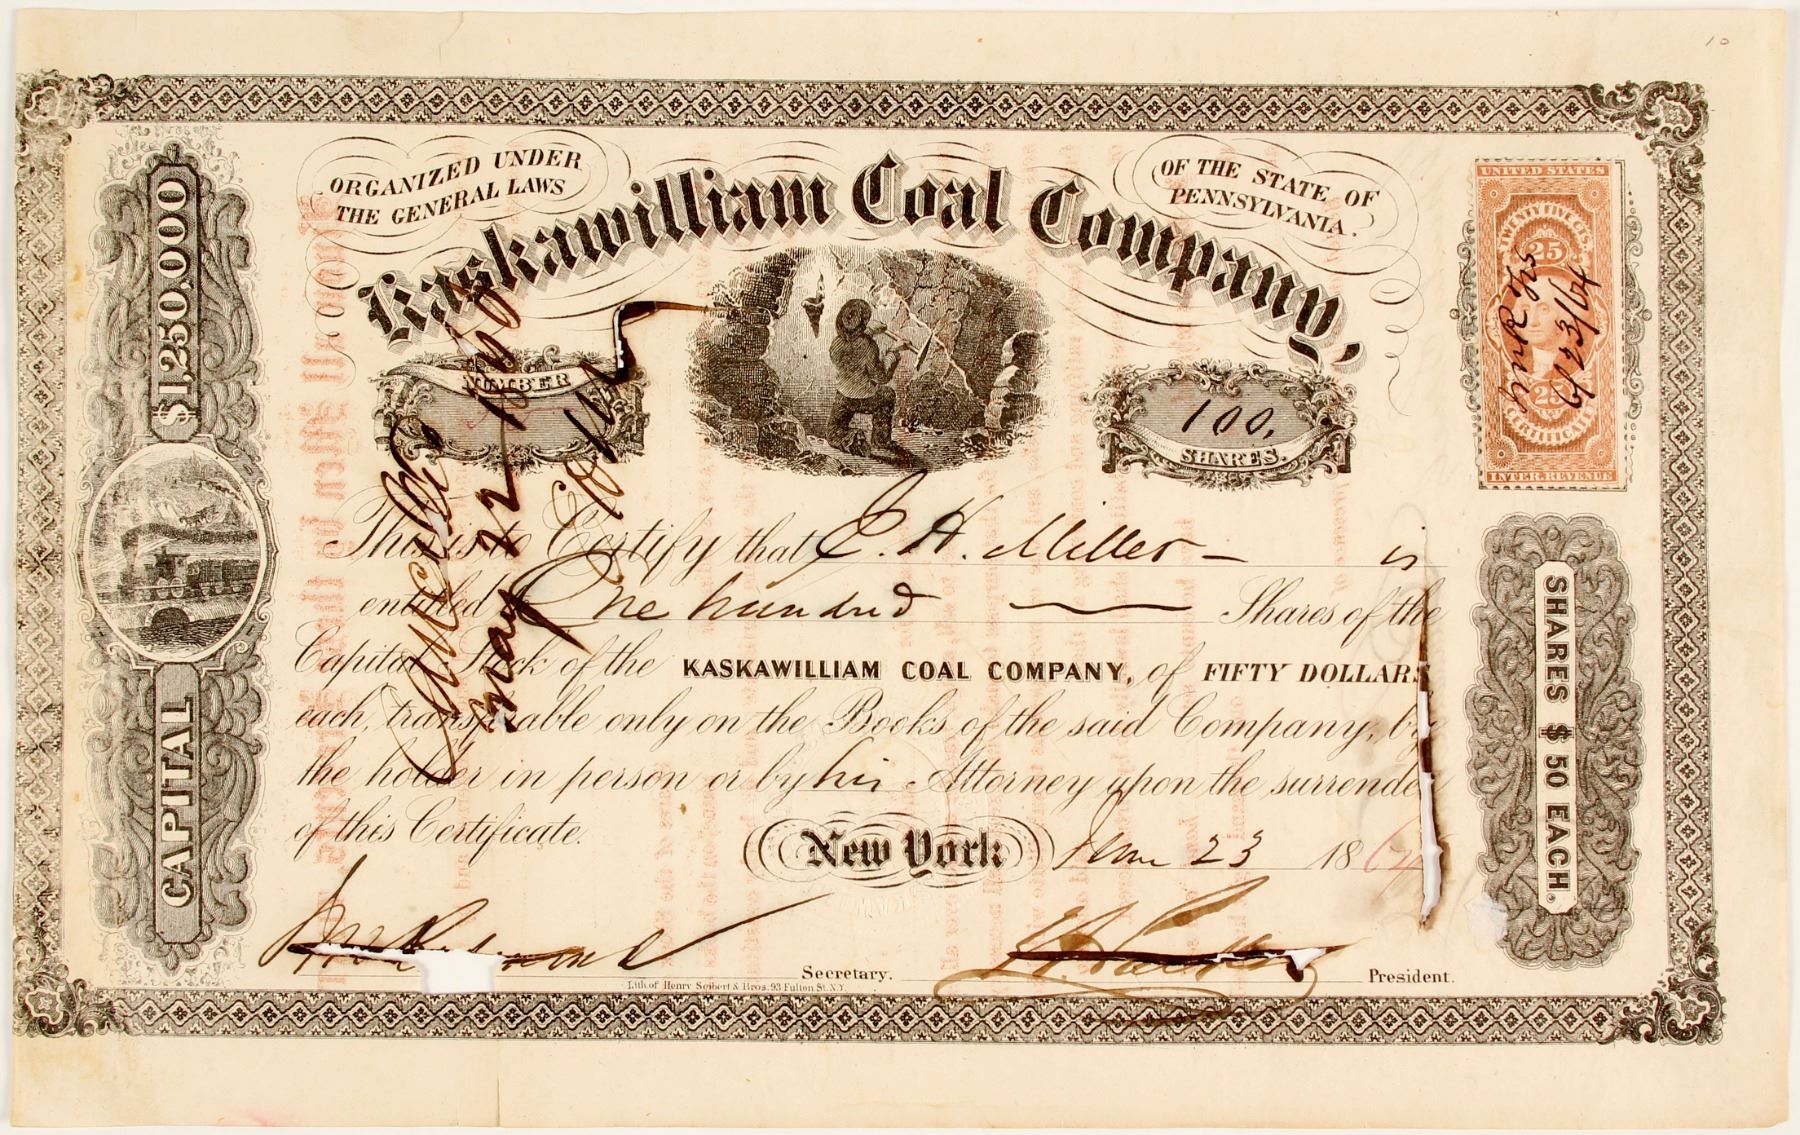 10
ORGANIZED UNDER
THE GENERAL LAWS
OF THE STATE OF
PENNSYLVANIA.
Kaskawilliam Coal Company,
$1,250,000
CAPITAL
NUMBER
100,
SHARES.
UNITED STATES
TWENTY FIVE CTS.
25
6/23/64
25
CERTIFICATE
INTER. REVENUE
Cancelled
May 22 1865
This is to Certify that E. H. Miller is
entitled One hundred Shares of the
Capital Stock of the KASKAWILLIAM COAL COMPANY, of FIFTY DOLLARS
each, transferable only on the Books of the said Company, by
the holder in person or by his Attorney upon the surrender
of this Certificate.
New York June 23 1864
Secretary.
President.
Lith. of Henry Seibert & Bros. 93 Fulton St. N.Y.
SHARES $50 EACH.